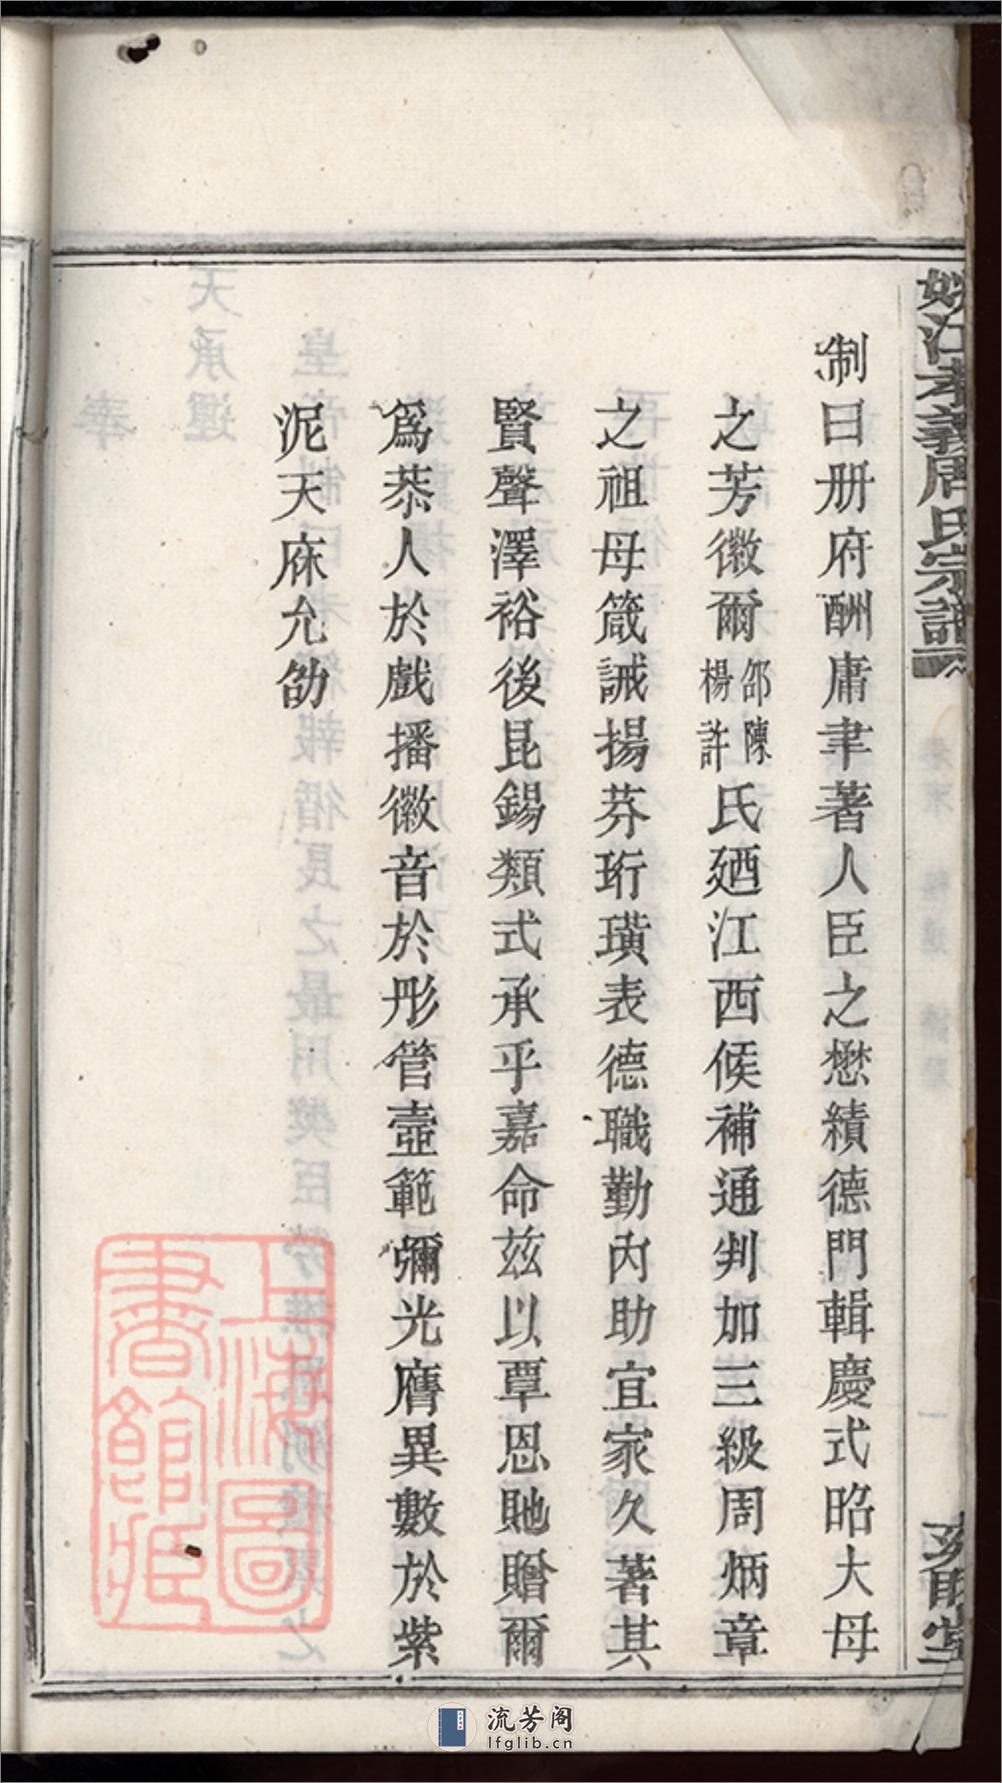 姚江孝義周氏宗譜
制曰册府酬庸聿著人臣之懋績德門輯慶式昭大母
之芳徽爾邵陳楊許氏廼江西候補通判加三級周炳章
之祖母箴誡揚芬珩璜表德職勤內助宜家久著其
賢聲澤裕後昆錫類式承乎嘉命兹以覃恩貤贈爾
爲恭人於戲播徽音於彤管壼範彌光膺異數於紫
泥天庥允劭
上海圖書館藏
流芳阁
lfglib.cn